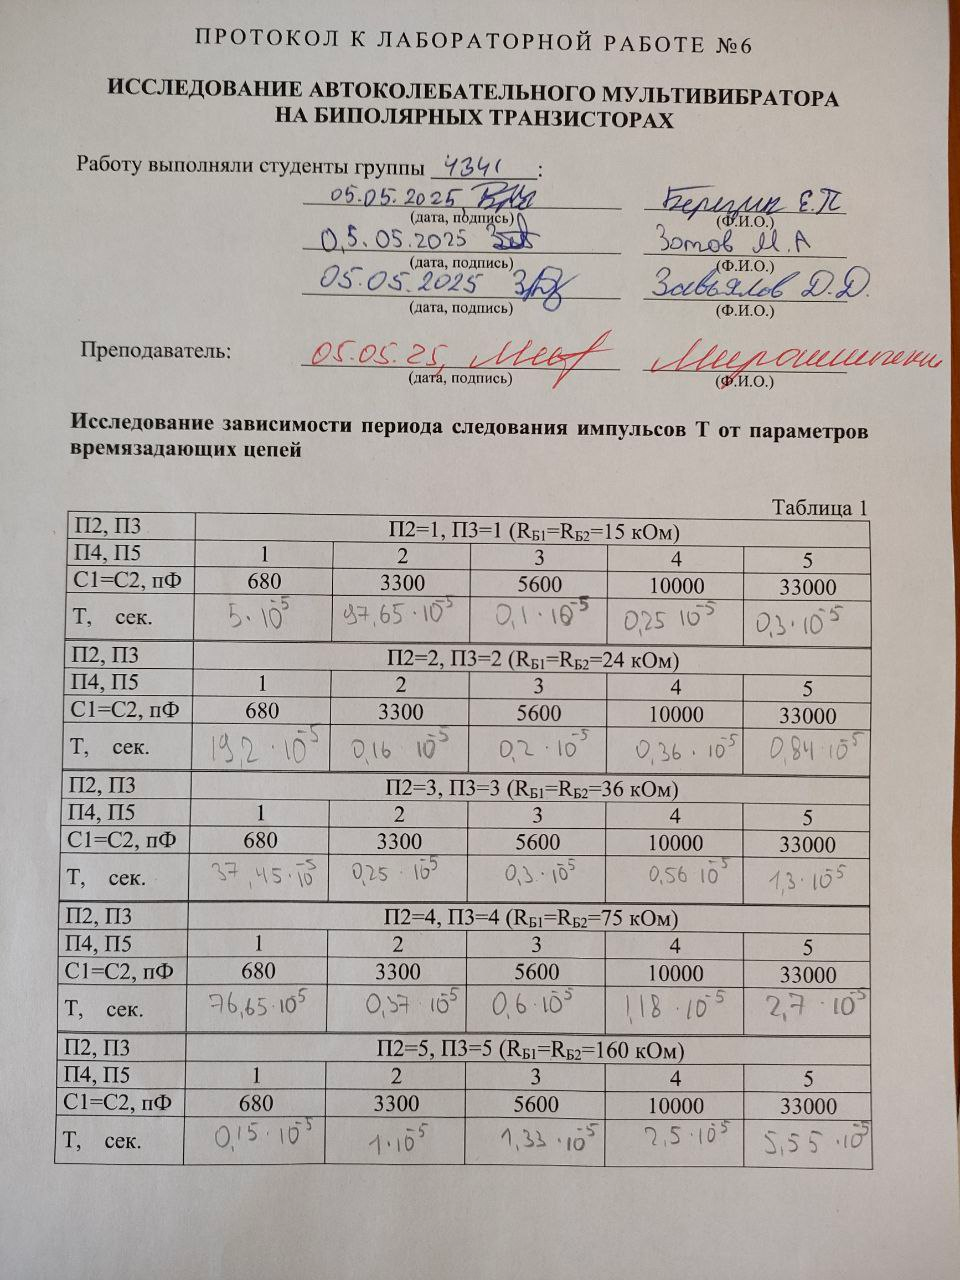 ПРОТОКОЛ К ЛАБОРАТОРНОЙ РАБОТЕ №6
ИССЛЕДОВАНИЕ АВТОКОЛЕБАТЕЛЬНОГО МУЛЬТИВИБРАТОРА
НА БИПОЛЯРНЫХ ТРАНЗИСТОРАХ
Работу выполняли студенты группы 4341 :
05.05.2025 Березин Е.П
(дата, подпись) (Ф.И.О.)
0,5.05.2025 Зотов М.А
(дата, подпись) (Ф.И.О.)
05.05.2025 Завьялов Д.Д.
(дата, подпись) (Ф.И.О.)
Преподаватель: 05.05.25,
(дата, подпись) (Ф.И.О.)
Исследование зависимости периода следования импульсов Т от параметров
времязадающих цепей
Таблица 1
П2, П3 П2=1, П3=1 (RБ1=RБ2=15 кОм)
П4, П5 1 2 3 4 5
С1=С2, пФ 680 3300 5600 10000 33000
Т, сек. 5·10⁻⁵ 97,65·10⁻⁵ 0,1·10⁻⁵ 0,25 10⁻⁵ 0,3·10⁻⁵
П2, П3 П2=2, П3=2 (RБ1=RБ2=24 кОм)
П4, П5 1 2 3 4 5
С1=С2, пФ 680 3300 5600 10000 33000
Т, сек. 19,2·10⁻⁵ 0,16 10⁻⁵ 0,2·10⁻⁵ 0,36·10⁻⁵ 0,84·10⁻⁵
П2, П3 П2=3, П3=3 (RБ1=RБ2=36 кОм)
П4, П5 1 2 3 4 5
С1=С2, пФ 680 3300 5600 10000 33000
Т, сек. 37,45·10⁻⁵ 0,25·10⁻⁵ 0,3·10⁻⁵ 0,56 10⁻⁵ 1,3·10⁻⁵
П2, П3 П2=4, П3=4 (RБ1=RБ2=75 кОм)
П4, П5 1 2 3 4 5
С1=С2, пФ 680 3300 5600 10000 33000
Т, сек. 76,65·10⁵ 0,37·10⁻⁵ 0,6·10⁻⁵ 1,18·10⁻⁵ 2,7·10⁻⁵
П2, П3 П2=5, П3=5 (RБ1=RБ2=160 кОм)
П4, П5 1 2 3 4 5
С1=С2, пФ 680 3300 5600 10000 33000
Т, сек. 0,15·10⁻⁵ 1·10⁻⁵ 1,33·10⁻⁵ 2,5·10⁻⁵ 5,55·10⁻⁵